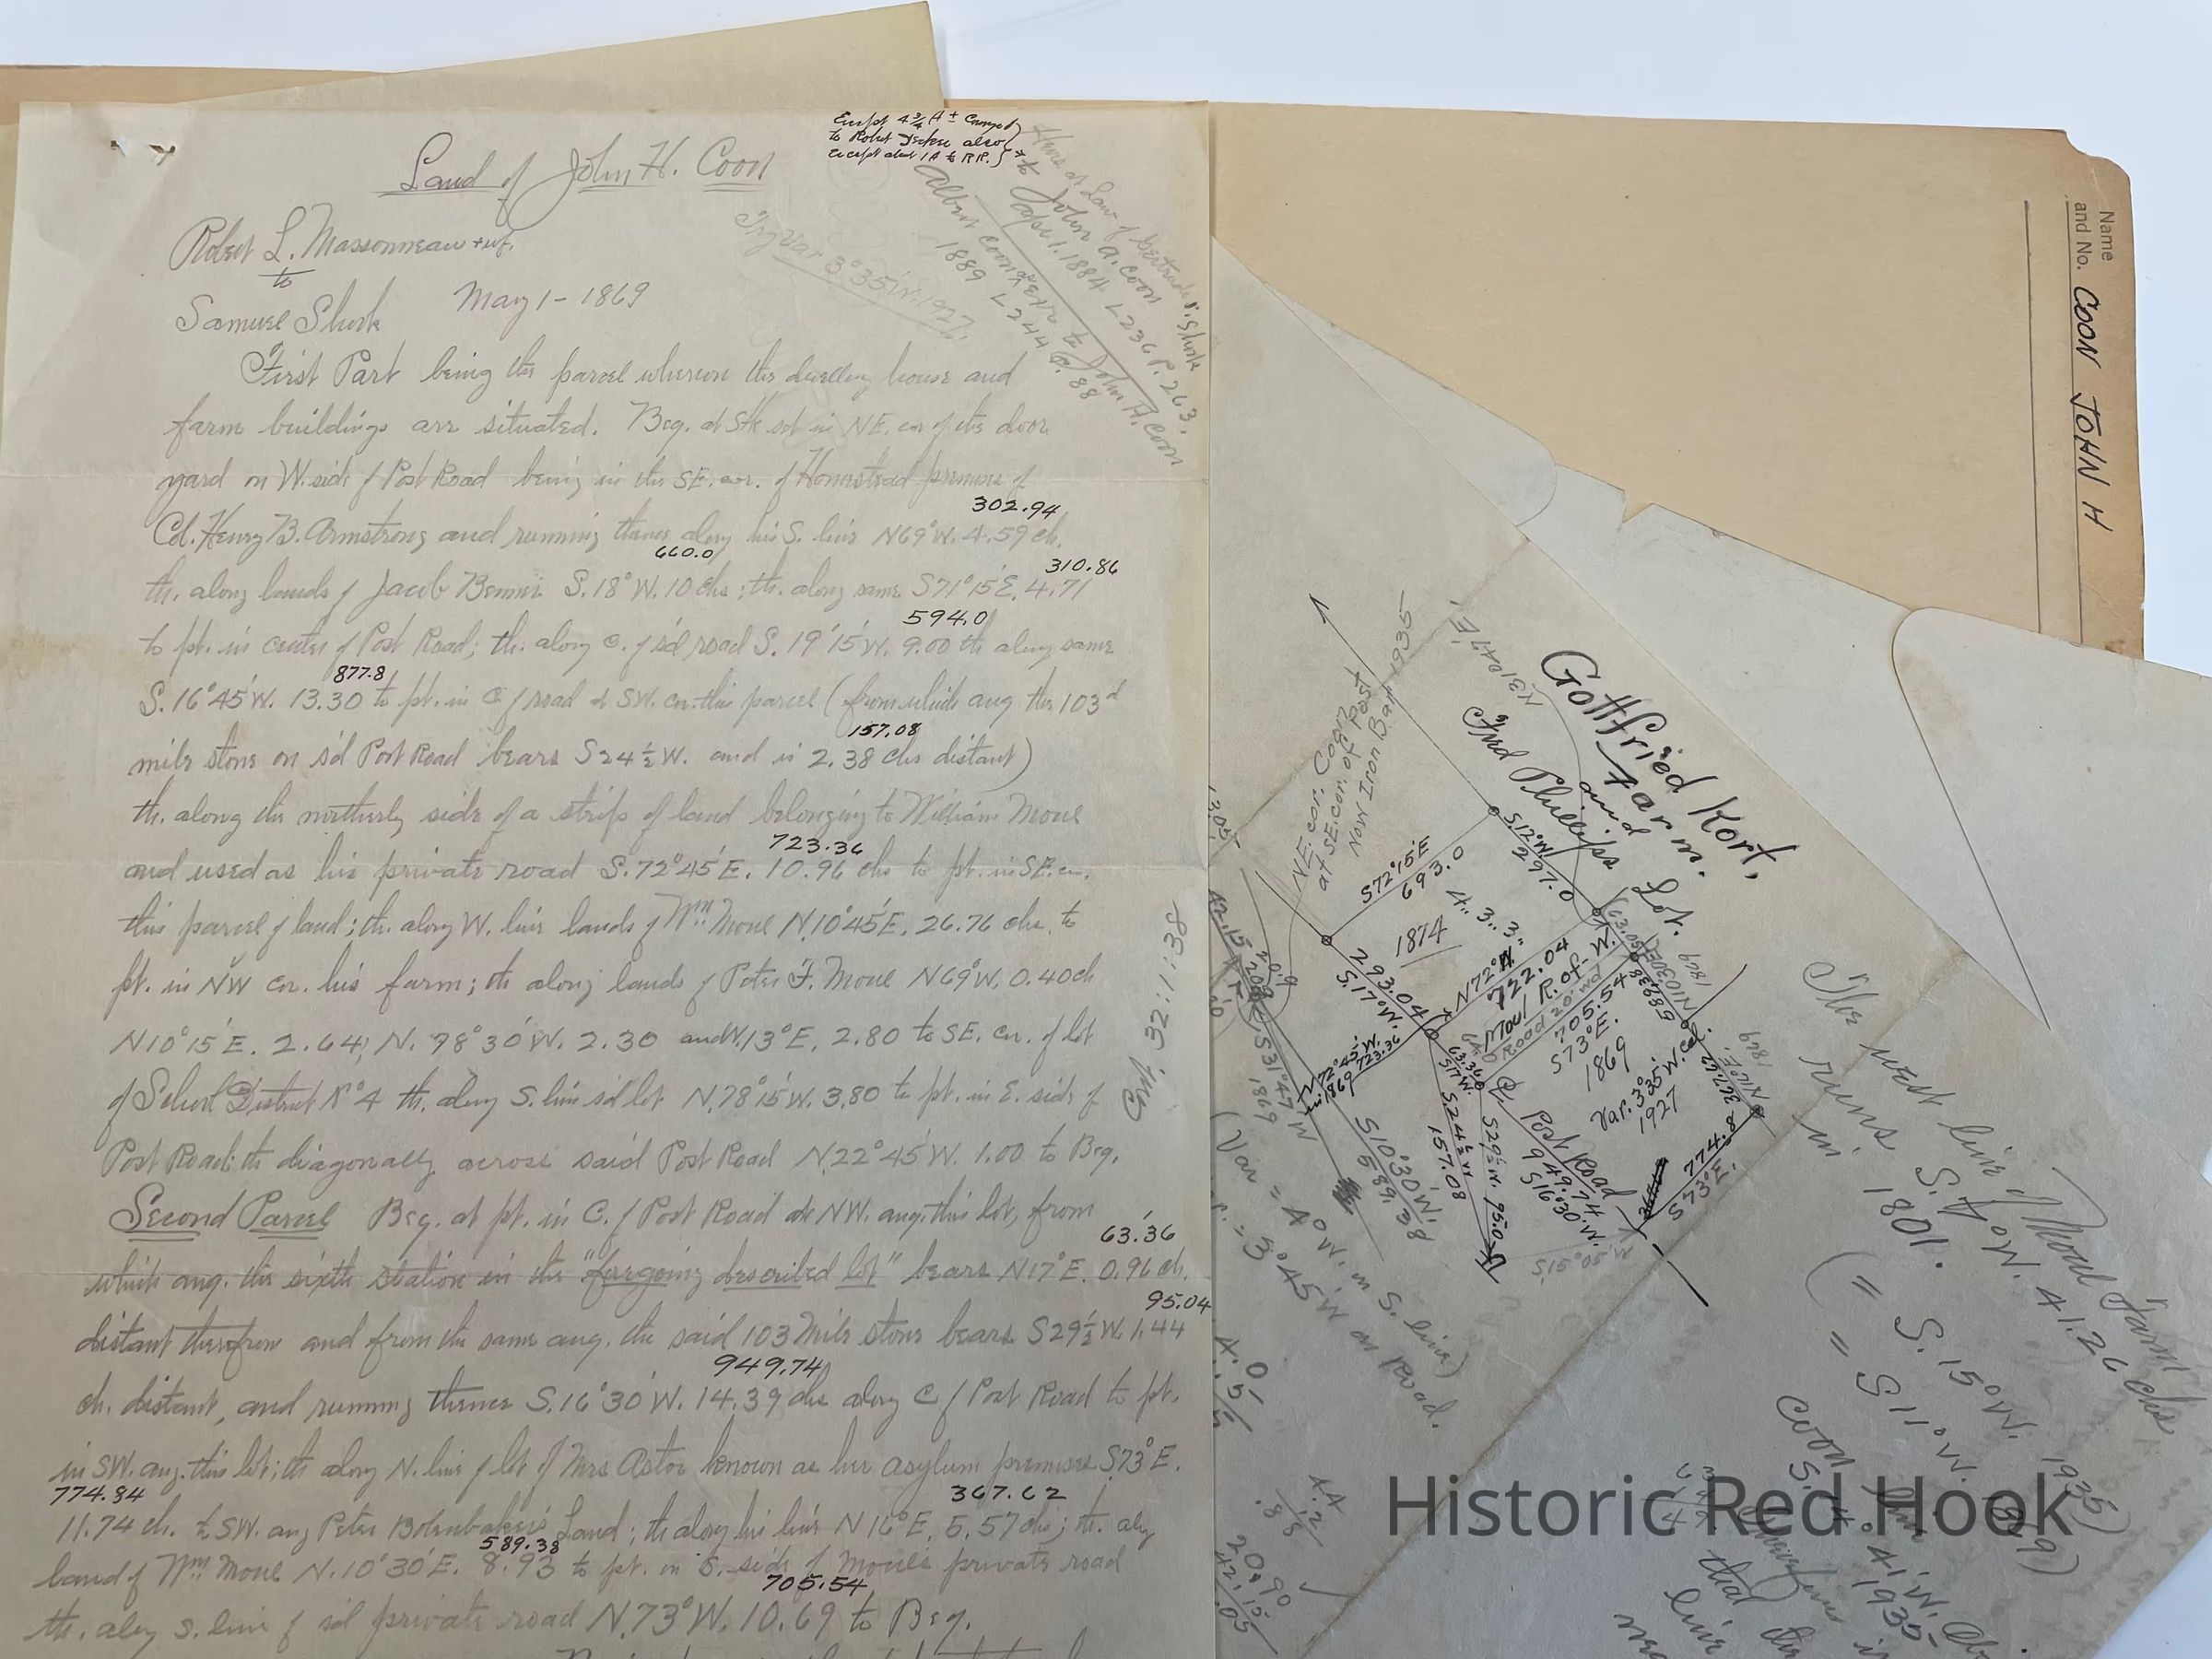 Land of John H. Coon
Except 4 3/4 A ± Conveyed
to Robert also
except about 1 A to R.R.
Heirs at Law of Gertrude S. Shook
to John A. Coon
Apr 1. 1884 L 236 P. 263.
Albert Coon & Exr. to John H. Coon
1889 L 244 P. 88
Var 3°35'W. 1927.
Robert L. Massonneau + wf.
to
Samuel Shook May 1 - 1869
First Part being the parcel whereon the dwelling house and
farm buildings are situated. Beg. at Stk set in NE. cor of the door
yard on W. side of Post Road being in the SE. cor. of Homestead premises of
302.94
Col. Henry B. Armstrong and running thence along his S. line N69°W. 4.59 ch.
660.0
310.86
th. along lands of Jacob Benner S. 18° W. 10 chs; th. along same S71°15'E. 4.71
594.0
to pt. in center of Post Road; th. along C. of s'd road S. 19°15'W. 9.00 th along same
877.8
S. 16°45'W. 13.30 to pt. in C of road & SW. cor. this parcel (from which ang the 103d
157.08
mile stone on s'd Post Road bears S24½W. and is 2.38 chs distant)
th. along the northerly side of a strip of land belonging to William Moul
723.36
and used as his private road S. 72°45'E. 10.96 chs to pt. in SE. cor.
this parcel of land; th. along W. line lands of Wm Moul N.10°45'E. 26.76 chs. to
pt. in NW cor. his farm; th along lands of Peter F. Moul N69°W. 0.40 ch
N10°15'E. 2.64; N. 78°30'W. 2.30 and N.13°E. 2.80 to SE. cor. of lot
of School District No 4 th. along S. line s'd lot N.78°15'W. 3.80 to pt. in E. side of
Post Road: th diagonally across said Post Road N.22°45'W. 1.00 to Beg.
Cont. 32:1:38
Second Parcel Beg. at pt. in C. of Post Road at NW. ang. this lot, from
63.36
which ang. the sixth station in the "foregoing described lot" bears N17°E. 0.96 ch.
95.04
distant therefrom and from the same ang. the said 103 Mile stone bears S29½W. 1.44
949.74
ch. distant, and running thence S. 16°30'W. 14.39 chs along C of Post Road to pt.
in SW. ang. this lot; th along N. line of lot of Mrs Astor known as her asylum premises S73°E.
774.84
367.62
11.74 ch. to SW. ang Peter Land; th along his line N 16°E. 5.57 chs; th. along
589.38
land of Wm Moul N. 10°30'E. 8.93 to pt. in S. side of Moul's private road
705.54
th. along S. line of s'd private road N.73°W. 10.69 to Beg.
Name
and No. COON JOHN H
Gottfried Kort,
Farm.
and
Fred Phillips Lot.
N31°47'E.
NE. cor. Coon
at SE. cor. of Post
Now Iron Bar 1935
S12°W.
297.0
S72°15'E
693.0
4.. 3.. 3..
1874
293.04
S.17°W.
N72°W.
722.04
Moul R.of-W.
Road 20' wd
705.54
S73°E.
1869
Var. 3°35'W.
1927
N72°45'W.
723.36
in 1869
63.36
S17°W.
S.24½W
157.08
S29½W. 95.04
Post Road
949.74
S16°30'W.
589.38
N10°30'E.
1869
367.62
N16°E.
1869
774.8
S73°E.
S15°05'W.
S31°47'W
1869
S10°30'W.
589.38
(Var = 4° W. in S. line)
3°45'W on Road.
The west line of Moul Farm
runs S.4°W. 41.26 chs
in 1801.
(" S. 15°W. 1935)
(" " S 11°W. 1869)
Coon line
S.14°41'W.
1935
therefore
that the
line
42.15
13.05
20.90
42.15
.05
Historic Red Hook